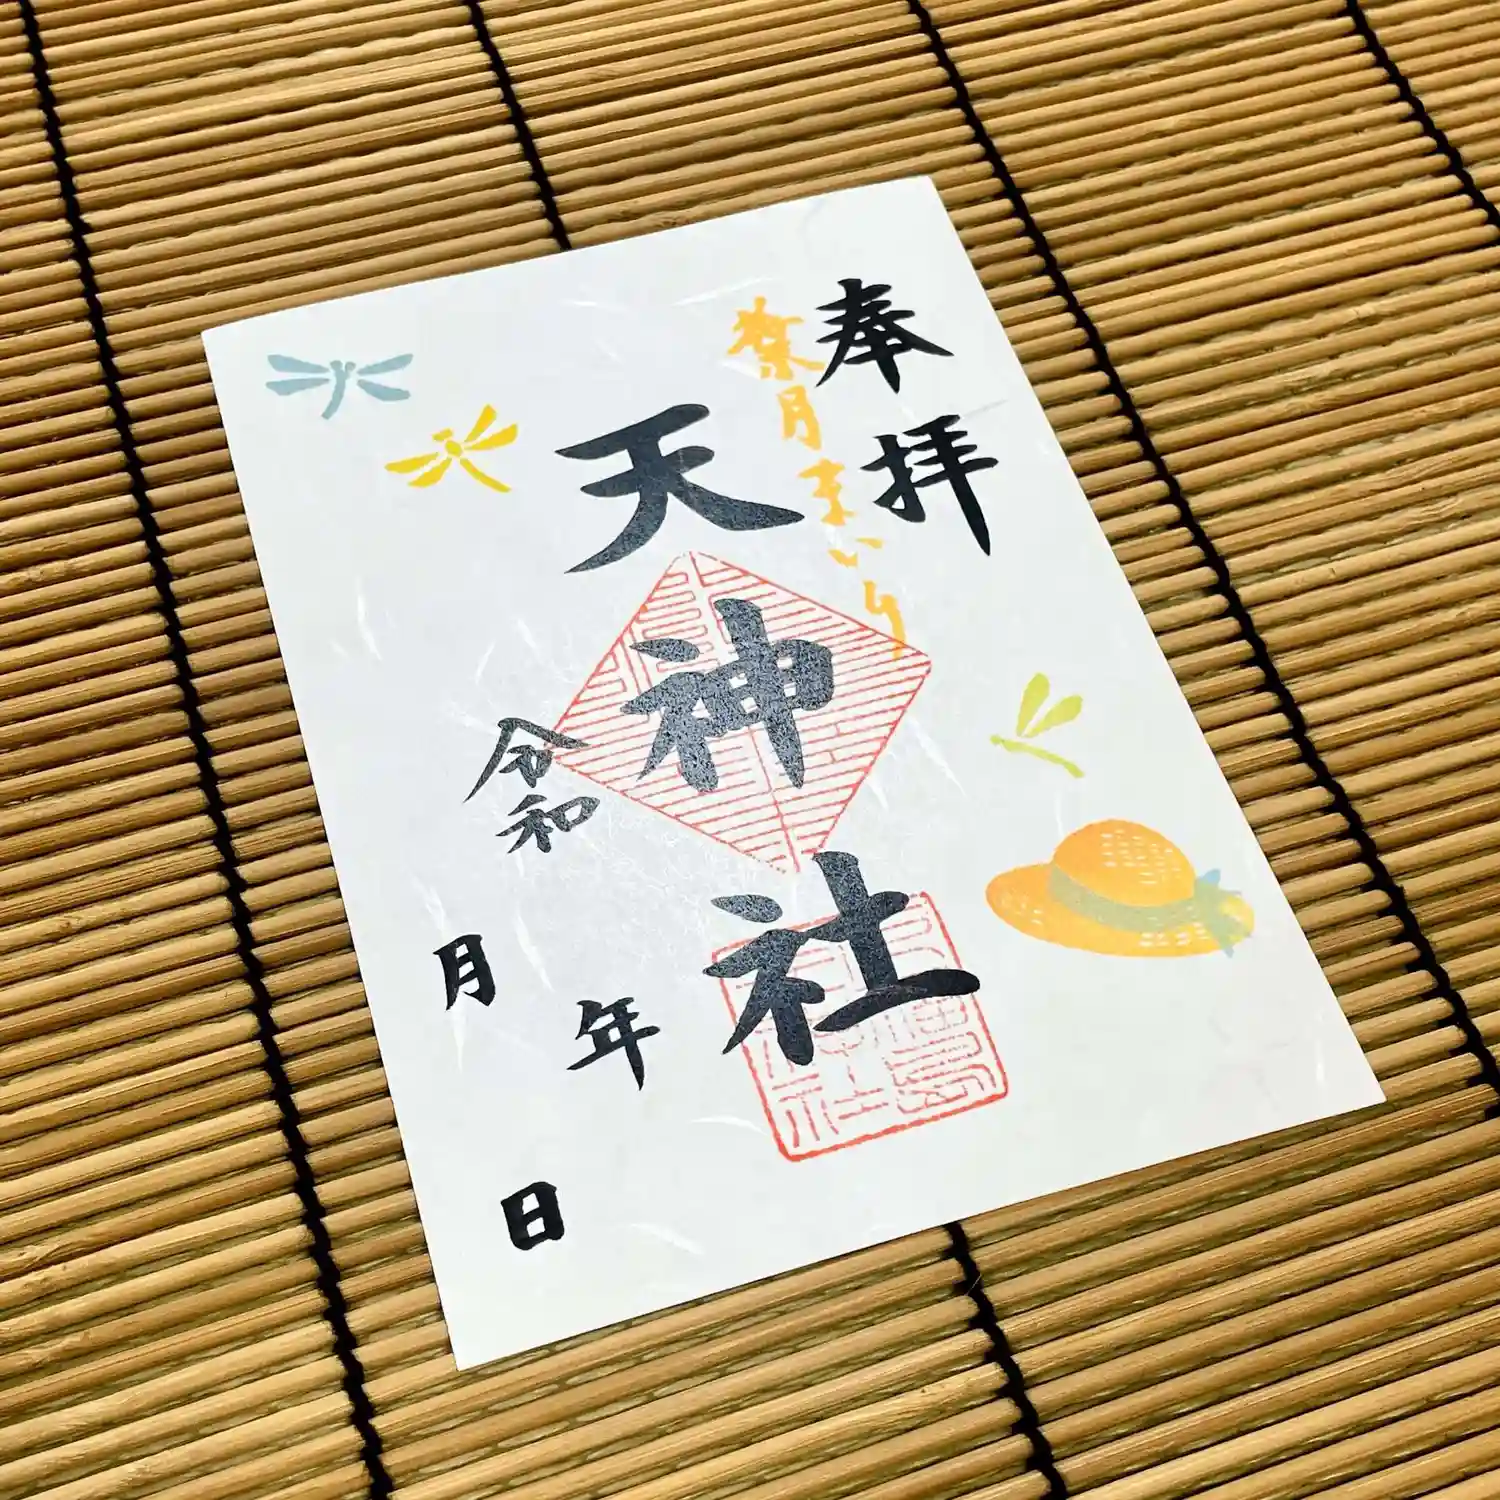 奉拝
葉月まいり
天神社
令和 年
月 日